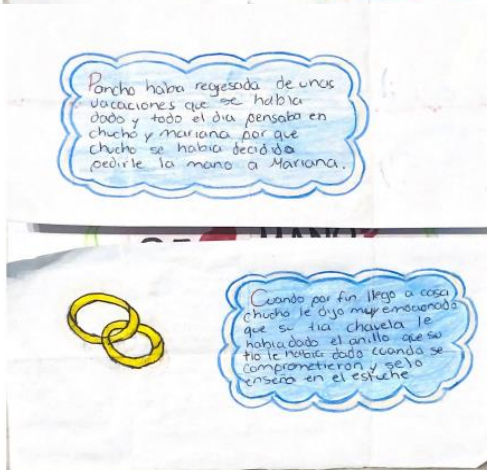 Poncho habia regresado de unas
vacaciones que se habia
dado y todo el dia pensaba en
chucho y mariana por que
chucho se habia decidido
pedirle la mano a Mariana.
Cuando por fin llego a casa
chucho le dijo muy emocionado
que su tia chavela le
habia dado el anillo que su
tio le habia dado cuando se
comprometieron y selo
enseño en el estuche